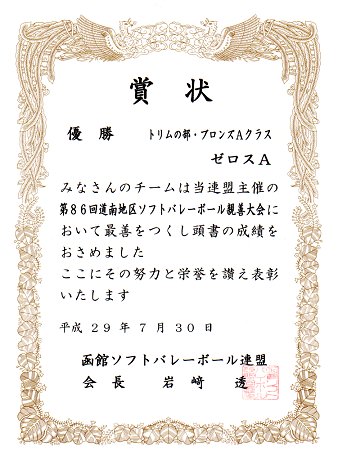 賞状
優勝 トリムの部・ブロンズAクラス
ゼロスA
みなさんのチームは当連盟主催の
第86回道南地区ソフトバレーボール親善大会に
おいて最善をつくし頭書の成績を
おさめました
ここにその努力と栄誉を讃え表彰
いたします
平成 29 年 7 月 30 日
函館ソフトバレーボール連盟
会長 岩崎 透